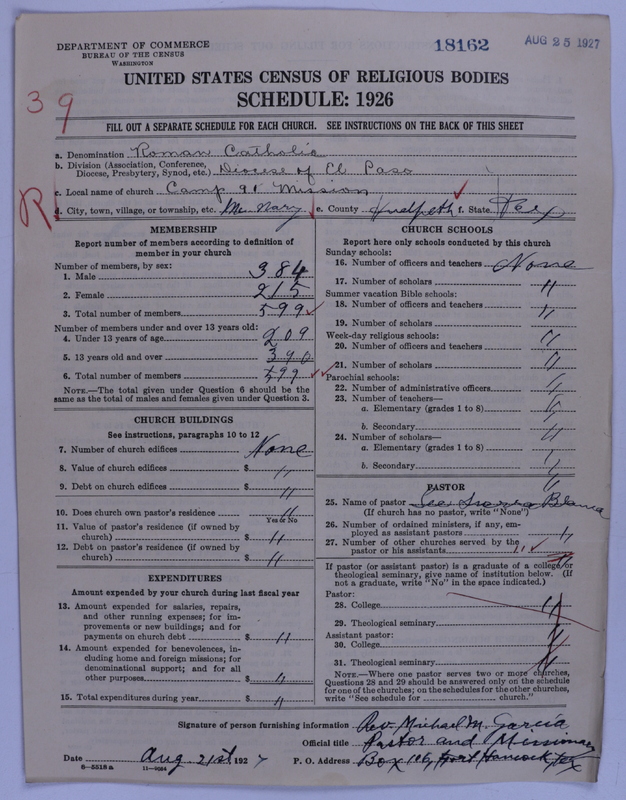 DEPARTMENT OF COMMERCE
BUREAU OF THE CENSUS
WASHINGTON
18162
AUG 25 1927
UNITED STATES CENSUS OF RELIGIOUS BODIES
SCHEDULE: 1926
39
FILL OUT A SEPARATE SCHEDULE FOR EACH CHURCH. SEE INSTRUCTIONS ON THE BACK OF THIS SHEET
a. Denomination Roman Catholic
b. Division (Association, Conference, Diocese, Presbytery, Synod, etc.) Diocese of El Paso
c. Local name of church Camp 91 Mission
R
d. City, town, village, or township, etc. McNary e. County Hudspeth f. State Tex
MEMBERSHIP
Report number of members according to definition of
member in your church
Number of members, by sex:
1. Male 384
2. Female 215
3. Total number of members 599
Number of members under and over 13 years old:
4. Under 13 years of age 209
5. 13 years old and over 390
6. Total number of members 599
NOTE.—The total given under Question 6 should be
same as the total of males and females given under Question 3.
CHURCH BUILDINGS
See instructions, paragraphs 10 to 12
7. Number of church edifices None
8. Value of church edifices $ "
9. Debt on church edifices $ "
10. Does church own pastor's residence "
Yes or No
11. Value of pastor's residence (if owned by
church) $ "
12. Debt on pastor's residence (if owned by
church) $ "
EXPENDITURES
Amount expended by your church during last fiscal year
13. Amount expended for salaries, repairs,
and other running expenses; for im-
provements or new buildings; and for
payments on church debt $ "
14. Amount expended for benevolences, in-
cluding home and foreign missions; for
denominational support; and for all
other purposes $ "
15. Total expenditures during year $ "
CHURCH SCHOOLS
Report here only schools conducted by this church
Sunday schools:
16. Number of officers and teachers None
17. Number of scholars "
Summer vacation Bible schools:
18. Number of officers and teachers "
19. Number of scholars
Week-day religious schools: "
20. Number of officers and teachers
21. Number of scholars "
Parochial schools:
22. Number of administrative officers "
23. Number of teachers—
a. Elementary (grades 1 to 8) "
b. Secondary
24. Number of scholars— "
a. Elementary (grades 1 to 8) "
b. Secondary "
PASTOR
25. Name of pastor See Sierra Blanca
(If church has no pastor, write "None")
26. Number of ordained ministers, if any, em-
ployed as assistant pastors "
27. Number of other churches served by the
pastor or his assistants 11
If pastor (or assistant pastor) is a graduate of a college or
theological seminary, give name of institution below. (If
not a graduate, write "No" in the space indicated.)
Pastor:
28. College "
29. Theological seminary "
Assistant pastor:
30. College "
31. Theological seminary "
NOTE.—Where one pastor serves two or more churches,
Questions 28 and 29 should be answered only on the schedule
for one of the churches; on the schedules for the other churches,
write "See schedule for church."
Signature of person furnishing information Rev. Michael M. Garcia
Official title Pastor and Missionary
Date Aug 21st 1927 P. O. Address Box 106, Fort Hancock, Tex
6—5518a 11—9084